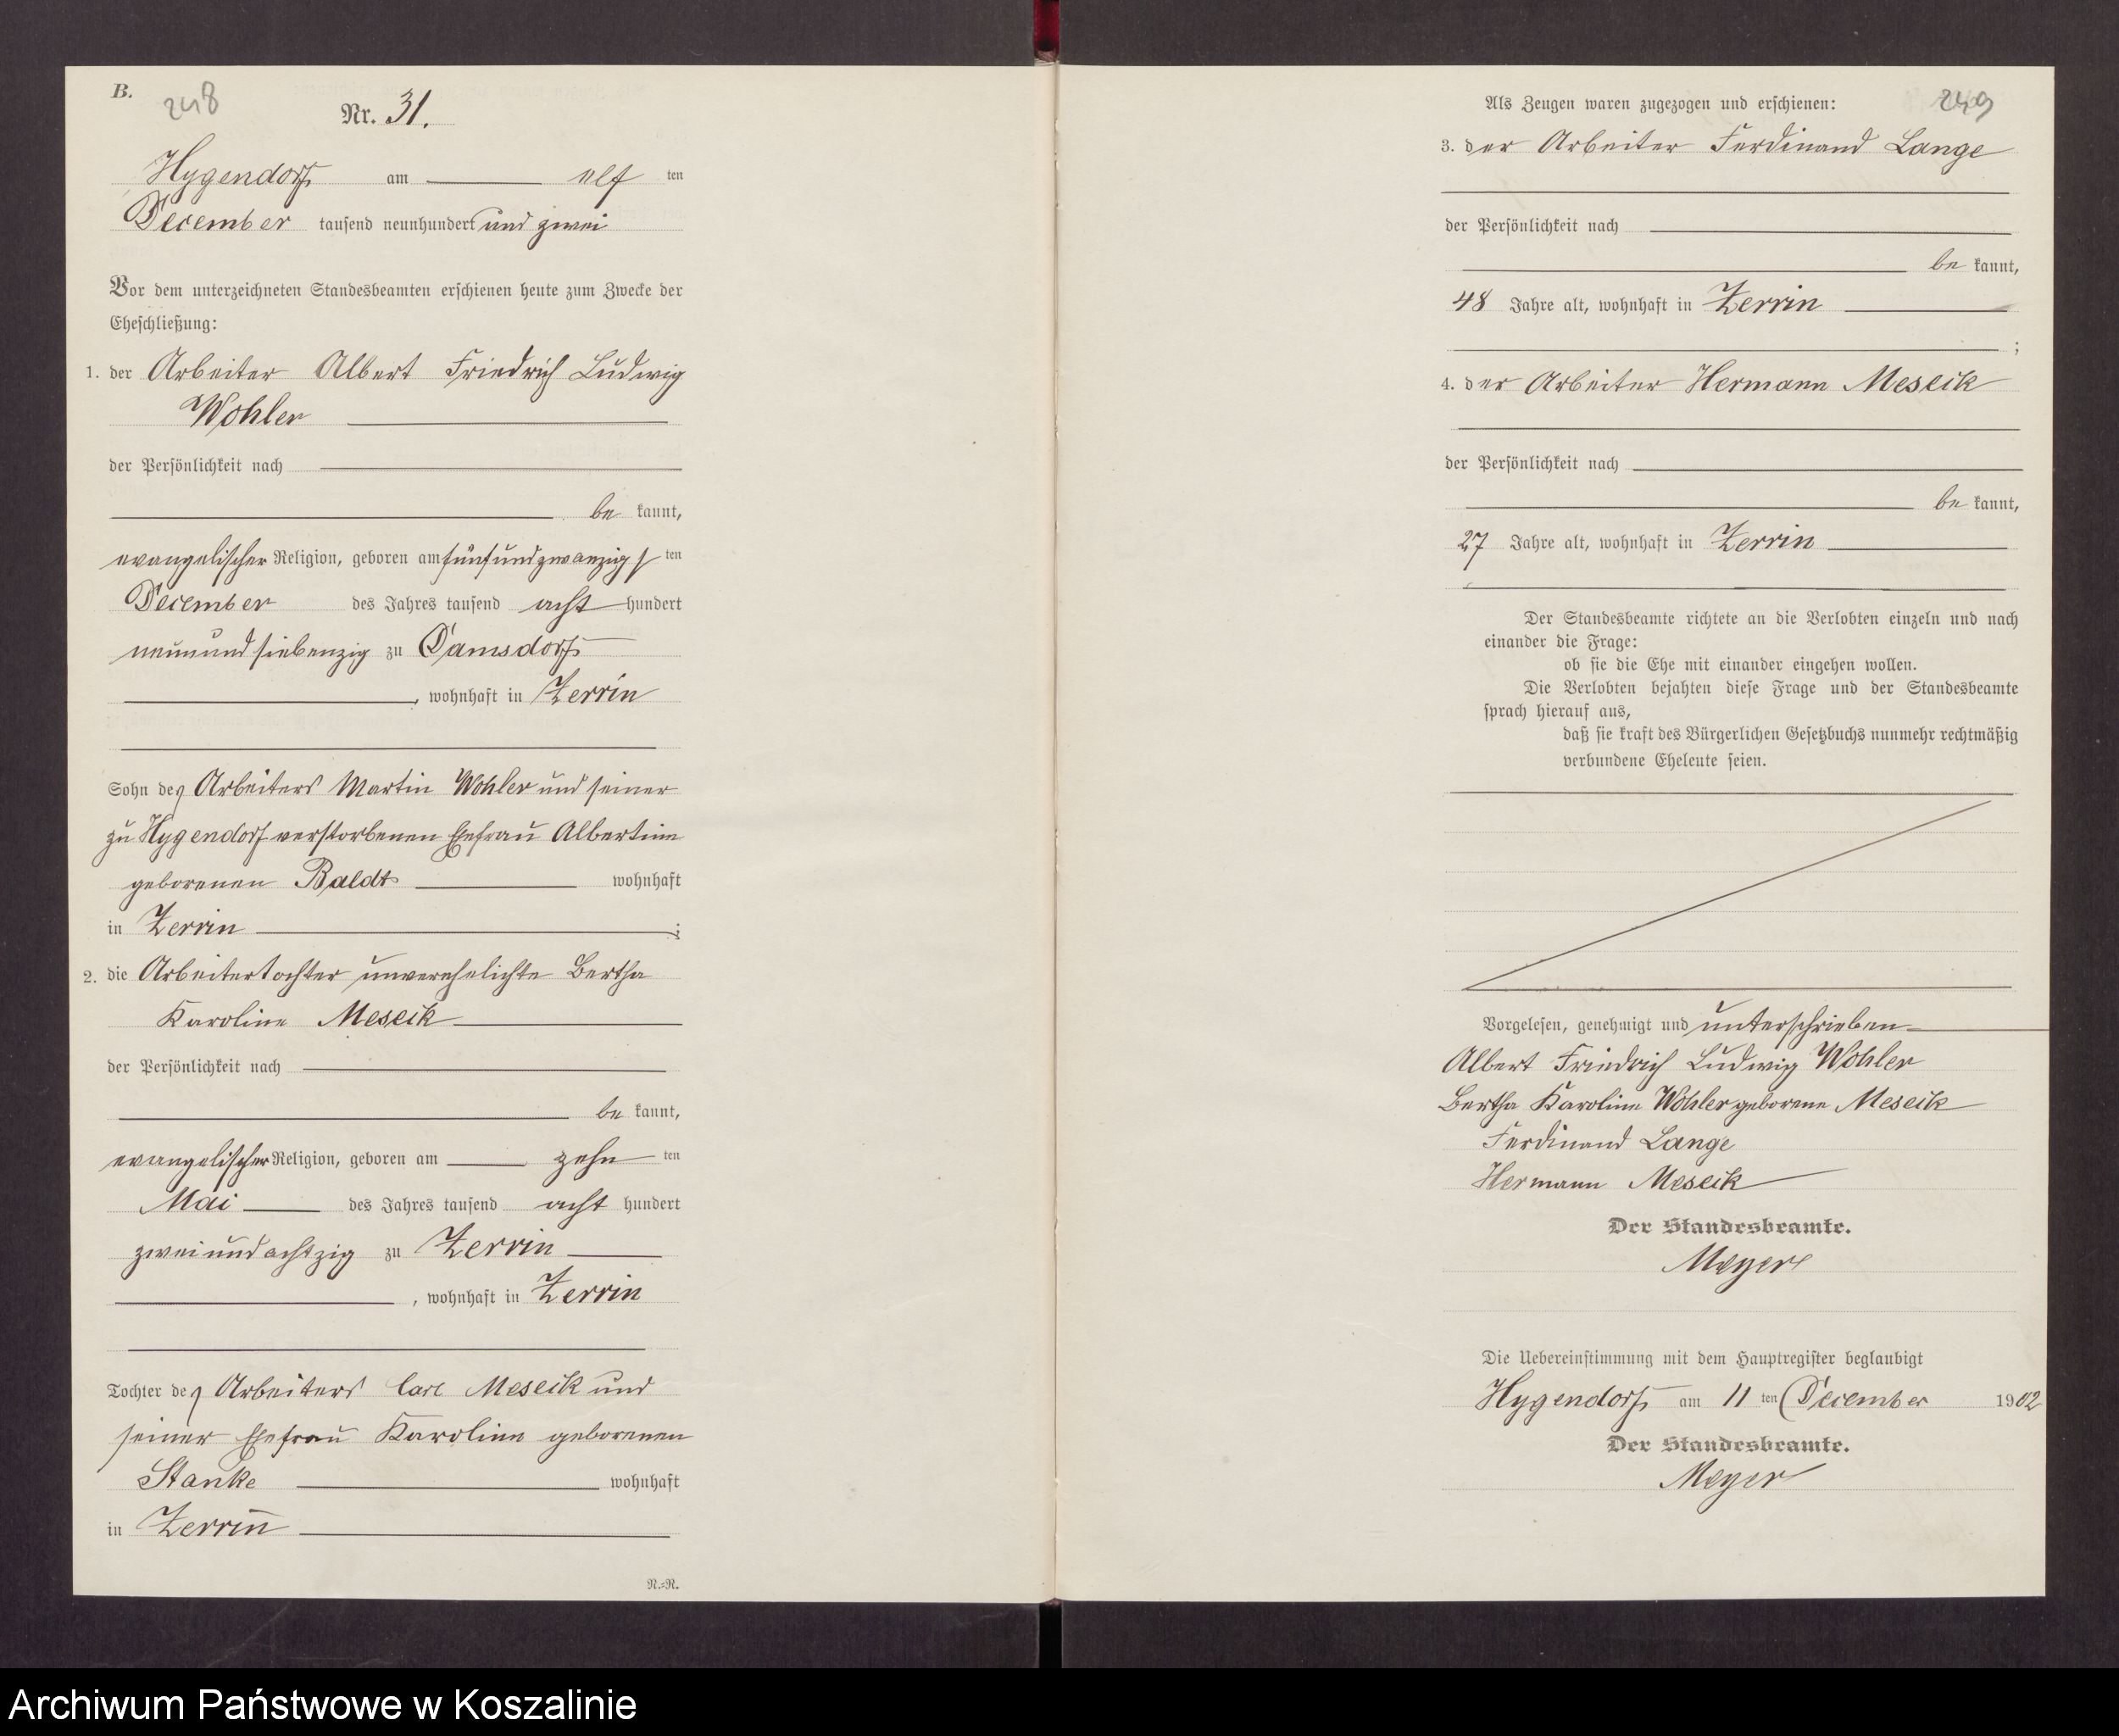 B.
248
Nr. 31.
Hygendorf am elf ten
December tausend neunhundert und zwei
Vor dem unterzeichneten Standesbeamten erschienen heute zum Zwecke der
Eheschließung:
1. der Arbeiter Albert Friedrich Ludwig
Wohler
der Persönlichkeit nach
be kannt,
evangelischer Religion, geboren am fünfundzwanzigs ten
December des Jahres tausend acht hundert
neunundsiebenzig zu Damsdorf
, wohnhaft in Zerrin
Sohn des Arbeiters Martin Wohler und seiner
zu Hygendorf verstorbenen Ehefrau Albertine
geborenen Baldt wohnhaft
in Zerrin ;
2. die Arbeitertochter unverehelichte Bertha
Karoline Meseik
der Persönlichkeit nach
be kannt,
evangelischer Religion, geboren am zehn ten
Mai des Jahres tausend acht hundert
zweiundachtzig zu Zerrin
, wohnhaft in Zerrin
Tochter des Arbeiters Carl Meseik und
seiner Ehefrau Karoline geborenen
Stanke wohnhaft
in Zerrin
N.=N.
Als Zeugen waren zugezogen und erschienen:
249
3. der Arbeiter Ferdinand Lange
der Persönlichkeit nach
be kannt,
48 Jahre alt, wohnhaft in Zerrin
;
4. der Arbeiter Hermann Meseik
der Persönlichkeit nach
be kannt,
27 Jahre alt, wohnhaft in Zerrin
Der Standesbeamte richtete an die Verlobten einzeln und nach
einander die Frage:
ob sie die Ehe mit einander eingehen wollen.
Die Verlobten bejahten diese Frage und der Standesbeamte
sprach hierauf aus,
daß sie kraft des Bürgerlichen Gesetzbuchs nunmehr rechtmäßig
verbundene Eheleute seien.
Vorgelesen, genehmigt und unterschrieben
Albert Friedrich Ludwig Wohler
Bertha Karoline Wohler geborene Meseik
Ferdinand Lange
Hermann Meseik
Der Standesbeamte.
Meyer
Die Uebereinstimmung mit dem Hauptregister beglaubigt
Hygendorf am 11 ten December 1902
Der Standesbeamte.
Meyer
Archiwum Państwowe w Koszalinie